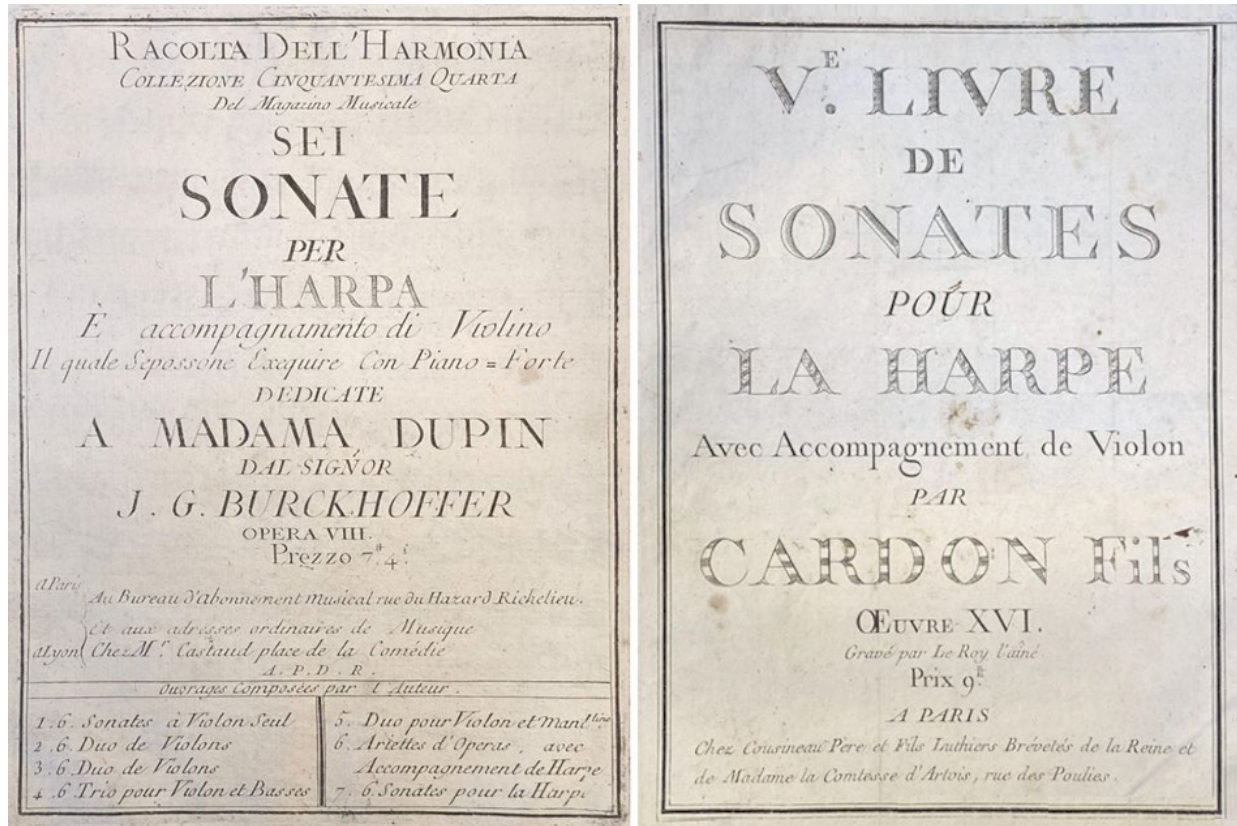 RACOLTA DELL'HARMONIA
COLLEZIONE CINQUANTESIMA QUARTA
Del Magazino Musicale
SEI
SONATE
PER
L'HARPA
È accompagnamento di Violino
Il quale Sepossone Exequire Con Piano = Forte
DEDICATE
A MADAMA DUPIN
DAL SIGNOR
J. G. BURCKHOFFER
OPERA VIII.
Prezzo 7.# 4.s
aParis
Au Bureau d'abonnement musical rue du Hazard Richelieu.
Et aux adresses ordinaires de Musique
aLyon Chez Mr. Castaud place de la Comédie
A. P. D. R.
Ouvrages Composées par l'Auteur.
1. 6. Sonates à Violon Seul
2. 6. Duo de Violons
3. 6. Duo de Violons
4. 6 Trio pour Violon et Basses
5. Duo pour Violon et mand.line
6. Ariettes d'Operas, avec
Accompagnement de Harpe
7. 6. Sonates pour la Harpe
VE. LIVRE
DE
SONATES
POUR
LA HARPE
Avec Accompagnement de Violon
PAR
CARDON Fils
ŒUVRE XVI.
Gravé par Le Roy l'aîné
Prix 9.#
A PARIS
Chez Cousineau Père et Fils Luthiers Brévetés de la Reine et
de Madame la Comtesse d'Artois, rue des Poulies.